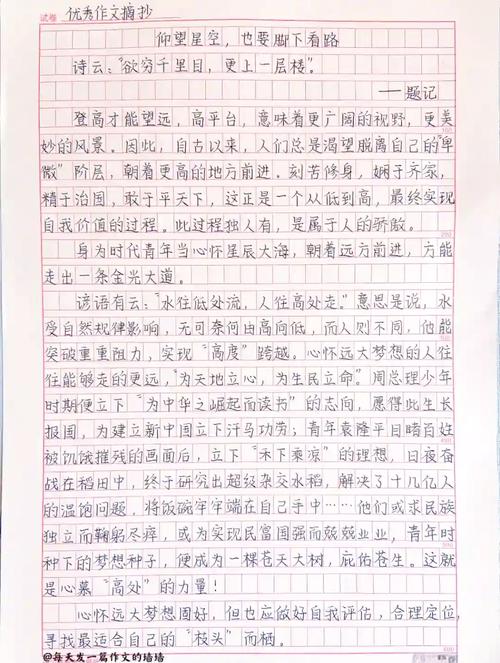 试卷 优秀作文摘抄
仰望星空，也要脚下看路
诗云：“欲穷千里目，更上一层楼”。
——题记
登高才能望远，高平台，意味着更广阔的视野，更美
妙的风景。因此，自古以来，人们总是渴望脱离自己的“卑
微”阶层，朝着更高的地方前进。刻苦修身，娴于齐家，
精于治国，敢于平天下，这正是一个从低到高，最终实现
自我价值的过程。此过程独人有，是属于人的骄傲。
身为时代青年当心怀星辰大海，朝着远方前进，方能
走出一条金光大道。
谚语有云：“水往低处流，人往高处走。”意思是说，水
受自然规律影响，无可奈何由高向低，而人则不同，他能
突破重重阻力，实现“高度”跨越。心怀远大梦想的人往
往能够走的更远，“为天地立心，为生民立命”。周总理少年
时期便立下“为中华之崛起而读书”的志向，愿得此生长
报国，为建立新中国立下汗马功劳；青年袁隆平目睹百姓
被饥饿摧残的画面后，立下“禾下乘凉”的理想，日夜奋
战在稻田中，终于研究出超级杂交水稻，解决了十几亿人
的温饱问题，将饭碗牢牢端在自己手中……他们或求民族
独立而鞠躬尽瘁，或为实现民富国强而兢兢业业，青年时
种下的梦想种子，便成为一棵苍天大树，庇佑苍生。这就
是心慕“高处”的力量！
心怀远大梦想固好，但也应做好自我评估，合理定位，
寻找最适合自己的“枝头”而栖。
@每天发一篇作文的墙墙